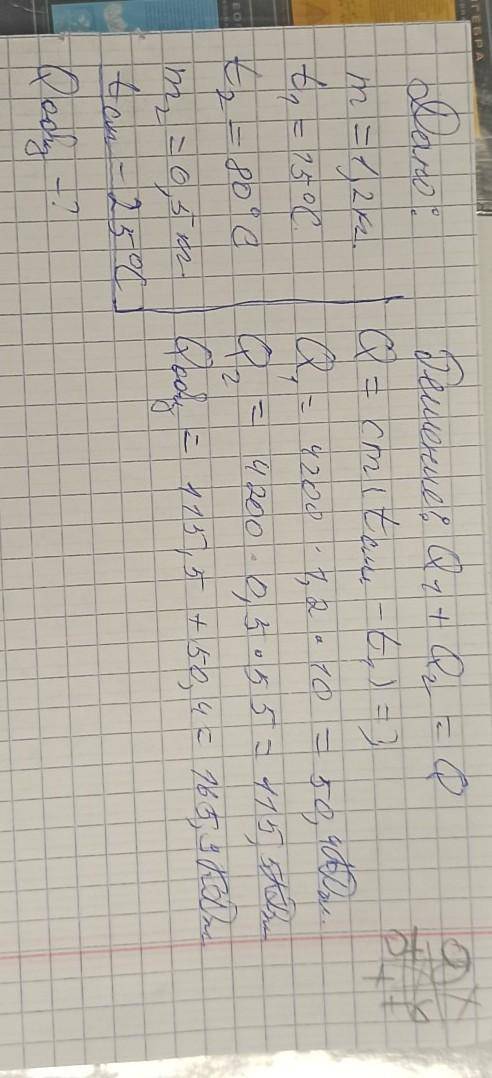 Дано:
m = 1,2 кг.
t₁ = 15°C
t₂ = 80°C
m₂ = 0,5 кг.
tсм = 25°C
Qобщ - ?
Решение: Q₁ + Q₂ = Q
Q = cm(tсм - t₁) =>
Q₁ = 4200 · 1,2 · 10 = 50,4 кДж.
Q₂ = 4200 · 0,5 · 55 = 115,5 кДж
Qобщ = 115,5 + 50,4 = 165,9 кДж